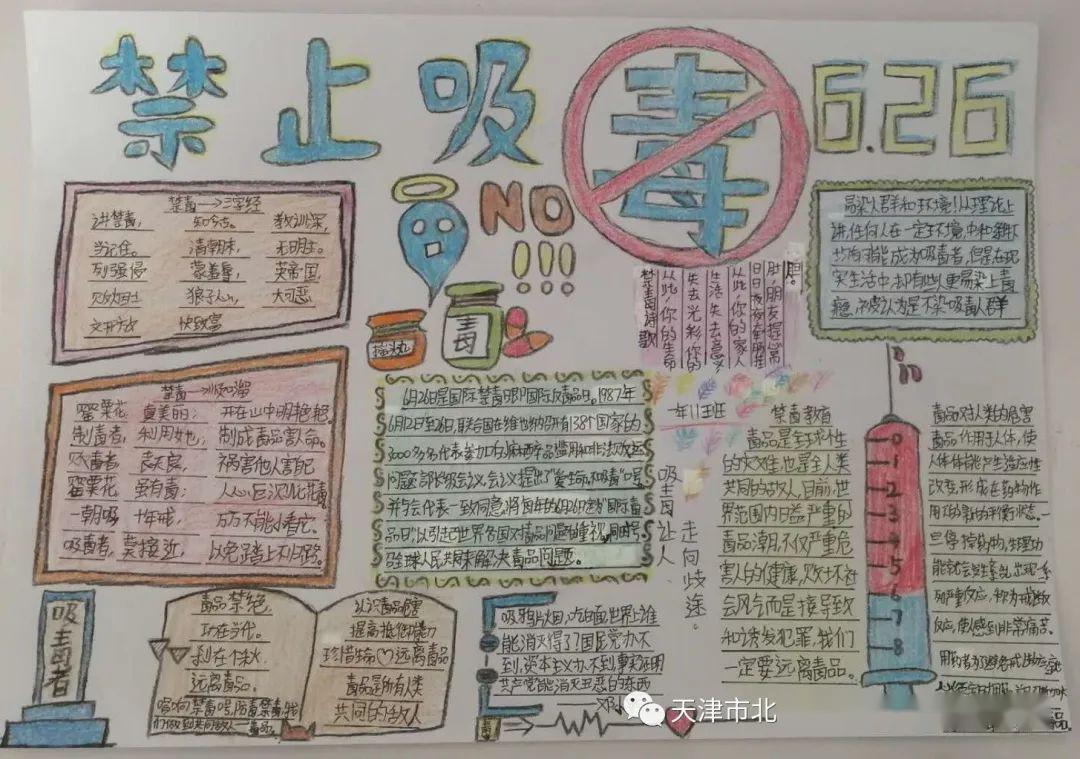 禁止吸毒
6.26
NO
!!!
毒
摇头丸
禁毒→三字经
讲禁毒， 知今古。 教训深，
当记住。 清朝末， 无明主。
列强侵 蒙羞辱， 英帝国
贩烟土 狼子心， 大可恶
文开放 快致富
禁毒→顺口溜
罂粟花 真美丽： 开在山中明艳艳。
制毒者， 利用她， 制成毒品害人命。
贩毒者， 丧天良， 祸害他人害自己
罂粟花 虽有毒：
一朝吸 十年戒， 万万不能小看它。
吸毒者， 莫接近， 以免踏上不归路。
禁毒诗歌
从此，你的生命
失去光彩，你的
生活失去意义
从此，你的家人
日日夜夜牵肠挂
肚，朋友提心吊
胆。
易染人群和环境：从理论上
讲，任何人在一定环境中和条件下
都有可能成为吸毒者，但是在现
实生活中，却有些人更易染上毒
瘾，被认为是不染吸毒人群
6月26日是国际禁毒日即国际反毒品日。1987年
6月12日至26日，联合国在维也纳召开有138个国家的
3000多名代表参加的麻醉品滥用和非法贩运
问题部长级会议，会议提出了“爱生命，和吸毒”口号
并与会代表一致同意，将每年的6月26日定为“国际禁毒
品日”以引起世界各国对毒品问题的重视，同时号
召全球人民共同来解决毒品问题。
一年11班
吸毒让人
走向歧途。
禁毒教育
毒品是全球性
的灾难，也是全人类
共同的敌人，目前，世
界范围内日益严重的
毒品潮，不仅严重危
害人的健康，败坏社
会风气，而是接导致
和诱发犯罪，我们
一定要远离毒品。
0
1
2
3
4
5
6
7
8
毒品对人类的危害
毒品作用于人体，使
人体体能产生适应性
改变，形成在药物作
用下的新的平衡状态。一
旦停掉药物，生理功
能就会发生紊乱，出现一系
列严重反应，称为戒断
反应，使感到非常痛苦。
吸毒者
毒品禁绝，
功在当代。
利在千秋
远离毒品。
认识毒品危害
提高抵御能力
珍惜生命♡远离毒品
毒品是所有人类
共同的敌人
吸鸦片烟，吃白面，世界上谁
能消灭得了？国民党办不
到，资本主义办不到，事实证明
共产党能消灭丑恶的东西
——邓小
天津市北